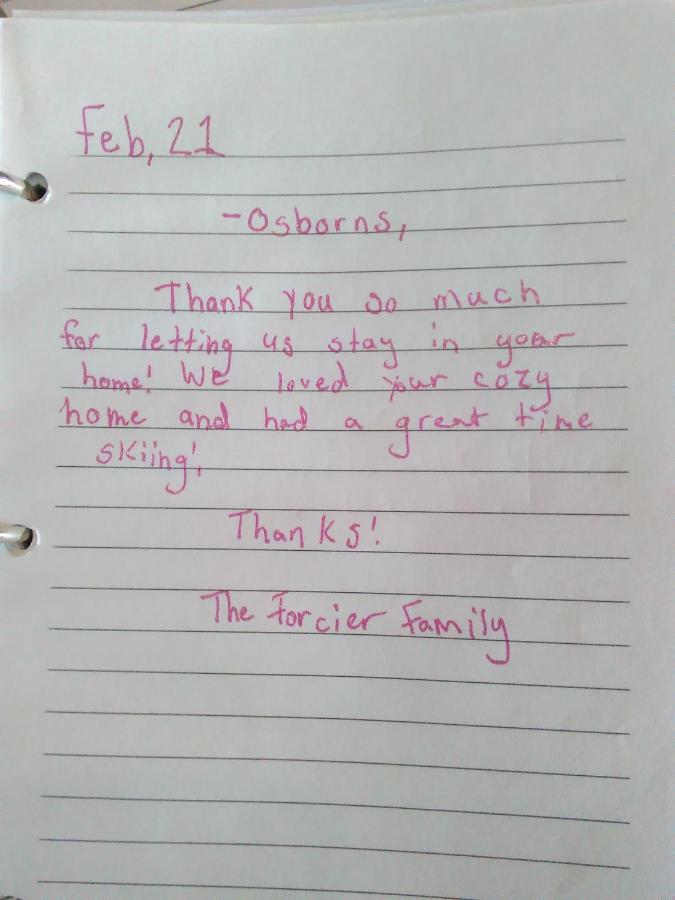 Feb, 21
-Osborns,
Thank you so much
for letting us stay in your
home! We loved your cozy
home and had a great time
skiing!
Thanks!
The Forcier Family